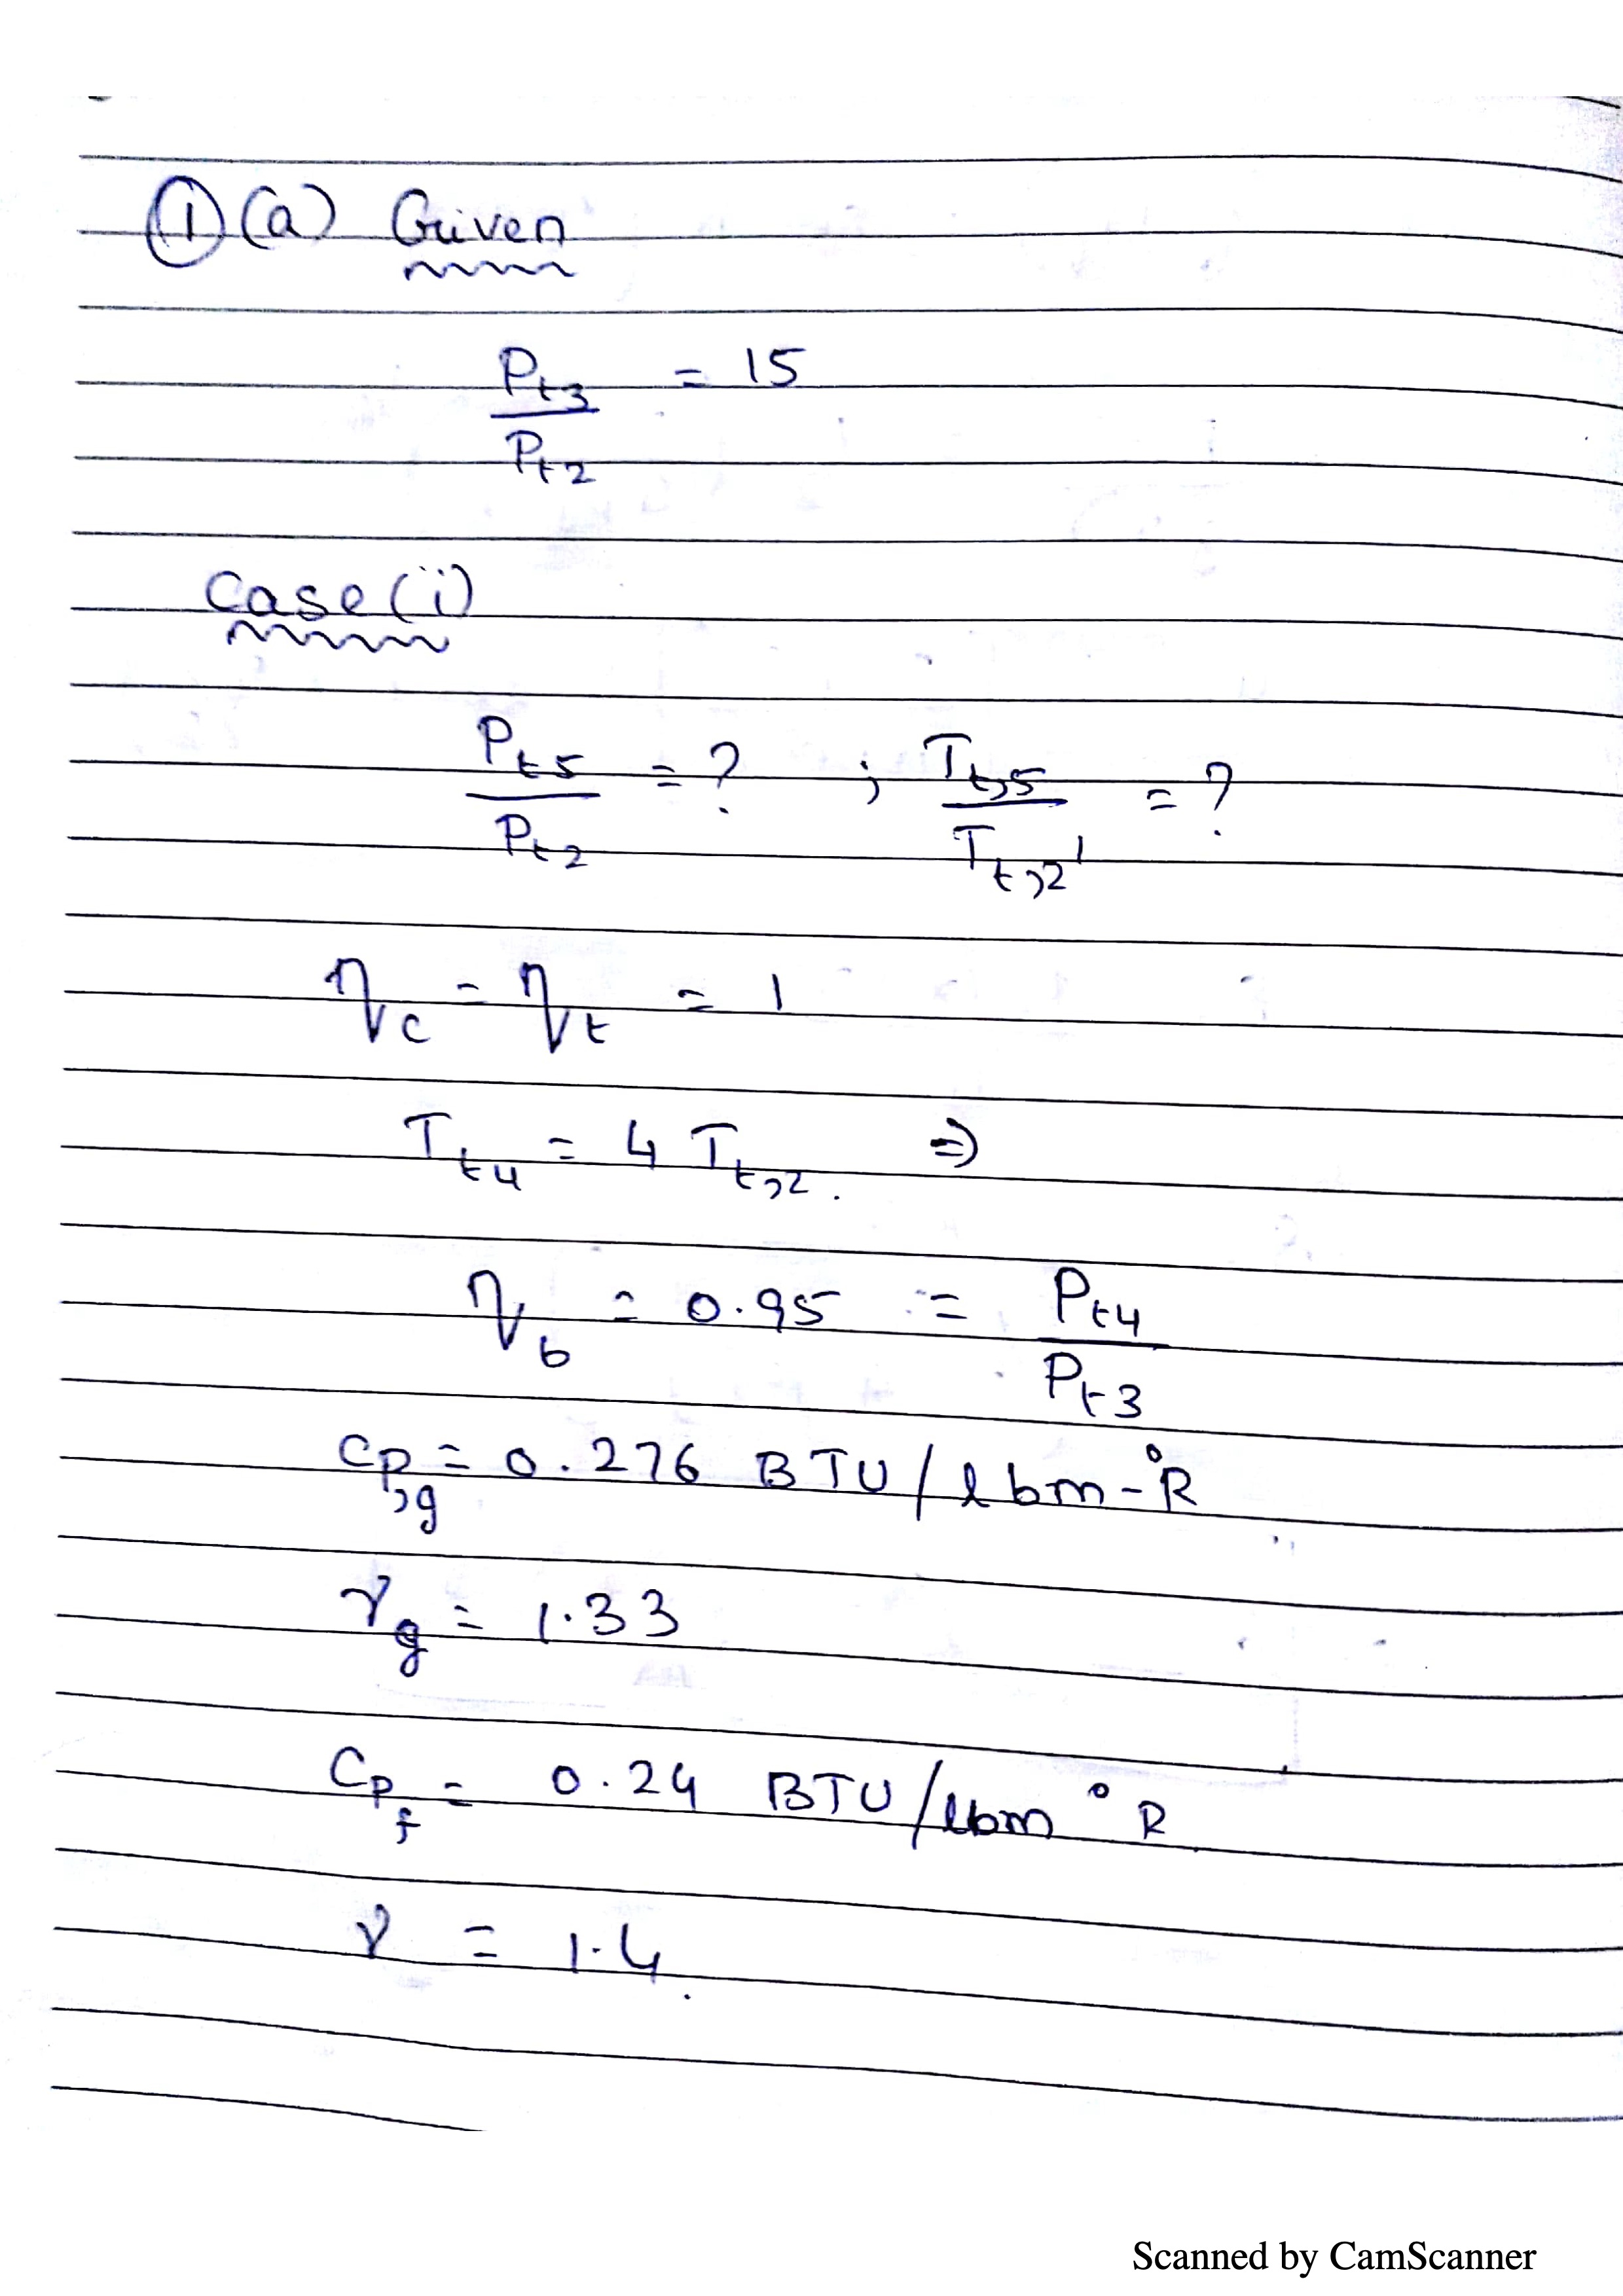 ① (a) Given
Pt3 / Pt2 = 15
Case (i)
Pt5 / Pt2 = ? ; Tt,5 / Tt,2' = ?
ηc = ηt = 1
Tt4 = 4 Tt,2. ⇒
ηb = 0.95 = Pt4 / Pt3
Cp,g = 0.276 BTU/lbm-°R
γg = 1.33
Cpf = 0.24 BTU/lbm °R
γ = 1.4.
Scanned by CamScanner